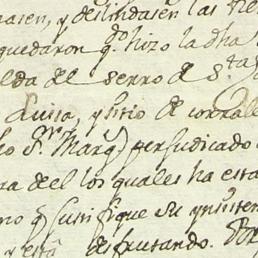 nasen, y deslindasen las tie
quedaron q.e hizo la dha
lda del serro de S.ta
Luisa, y sitio de corrale
ho S.r Marq.s) perjudicado
ra de los quales ha esta
mo q justifique su yntten
y está disfrutando. Por